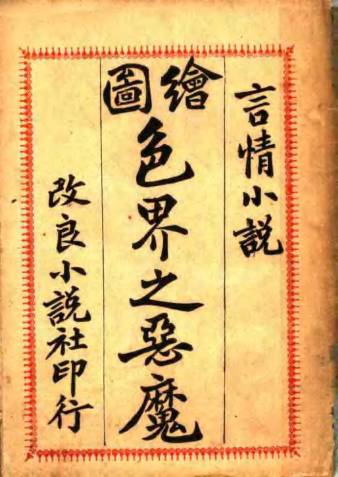 言情小説
繪圖
色界之惡魔
改良小説社印行